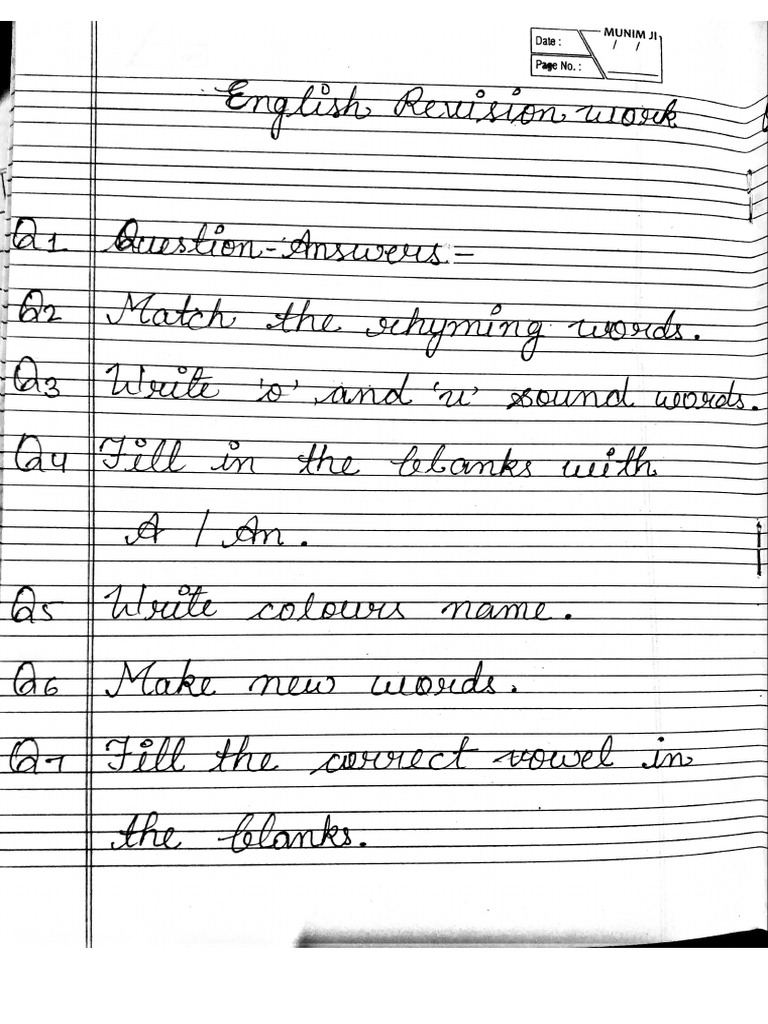 MUNIM JI
Date : / /
Page No. :
English Revision work
Q1 Question-Answers:-
Q2 Match the rhyming words.
Q3 Write 'o' and 'u' sound words.
Q4 Fill in the blanks with
A / An.
Q5 Write colours name.
Q6 Make new words.
Q7 Fill the correct vowel in
the blanks.